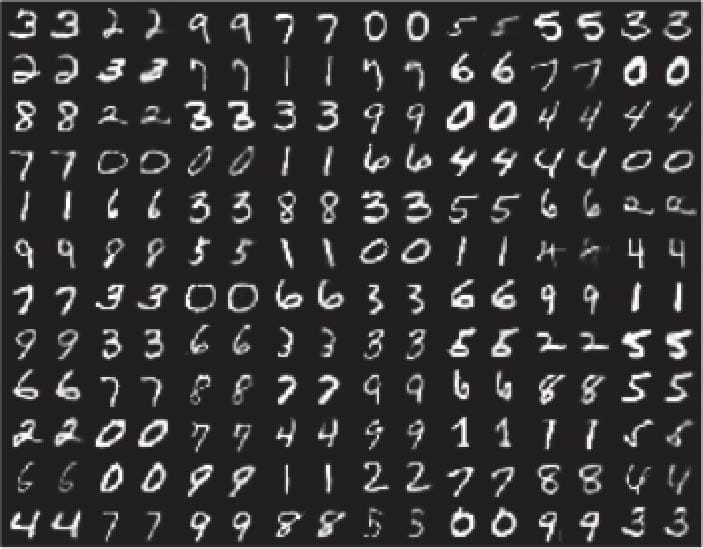 3 3 2 2 9 9 7 7 0 0 5 5 5 5 3 3
2 2 3 3 7 7 1 1 7 7 6 6 7 7 0 0
8 8 2 2 3 3 3 3 9 9 0 0 4 4 4 4
7 7 0 0 0 0 1 1 6 6 4 4 4 4 0 0
1 1 6 6 3 3 8 8 3 3 5 5 6 6 2 2
9 9 8 8 5 5 1 1 0 0 1 1 4 4
7 7 3 3 0 0 6 6 3 3 6 6 9 9 1 1
9 9 3 3 6 6 3 3 3 3 8 8 2 2 5 5
6 6 7 7 8 8 7 7 9 9 6 6 8 8 5 5
2 2 0 0 7 7 4 4 9 9 1 1 1 1 5 5
6 6 0 0 9 9 1 1 2 2 7 7 8 8 4 4
4 4 7 7 9 9 8 8 5 5 0 0 9 9 3 3